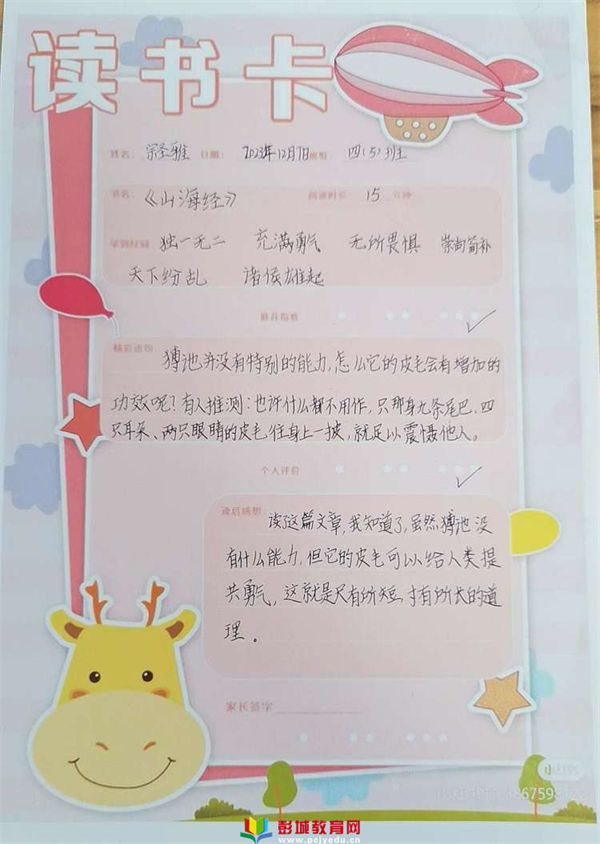 读书卡
姓名：宗圣雅 日期：2023年12月7日 班级：四（5）班
书名：《山海经》 阅读时长：15 分钟
学到好词 独一无二 充满勇气 无所畏惧
天下纷乱 诸侯雄起
推荐指数 ✓
精彩语句 猼池并没有特别的能力，怎么它的皮毛会有增加的
功效呢？有人推测：也许什么都不用作，只那身九条尾巴、四
只耳朵、两只眼睛的皮毛，往身上一披，就足以震慑他人。
个人评价 ✓
读后感想 读了这篇文章，我知道了，虽然猼池没
有什么能力，但它的皮毛可以给人类提
共勇气，这就是尺有所短，寸有所长的道
理。
家长签字
彭城教育网
www.pcjyedu.cn